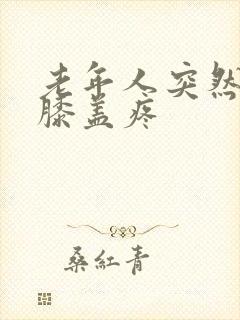 老年人突然
膝盖疼
桑红青